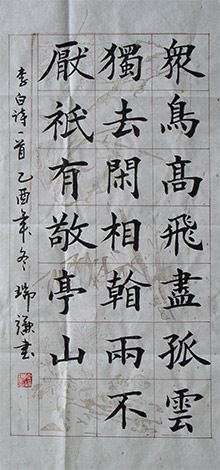 衆鳥髙飛盡孤雲
獨去閑相翰兩不
厭祇有敬亭山
李白诗一首乙酉年冬瑞谦書